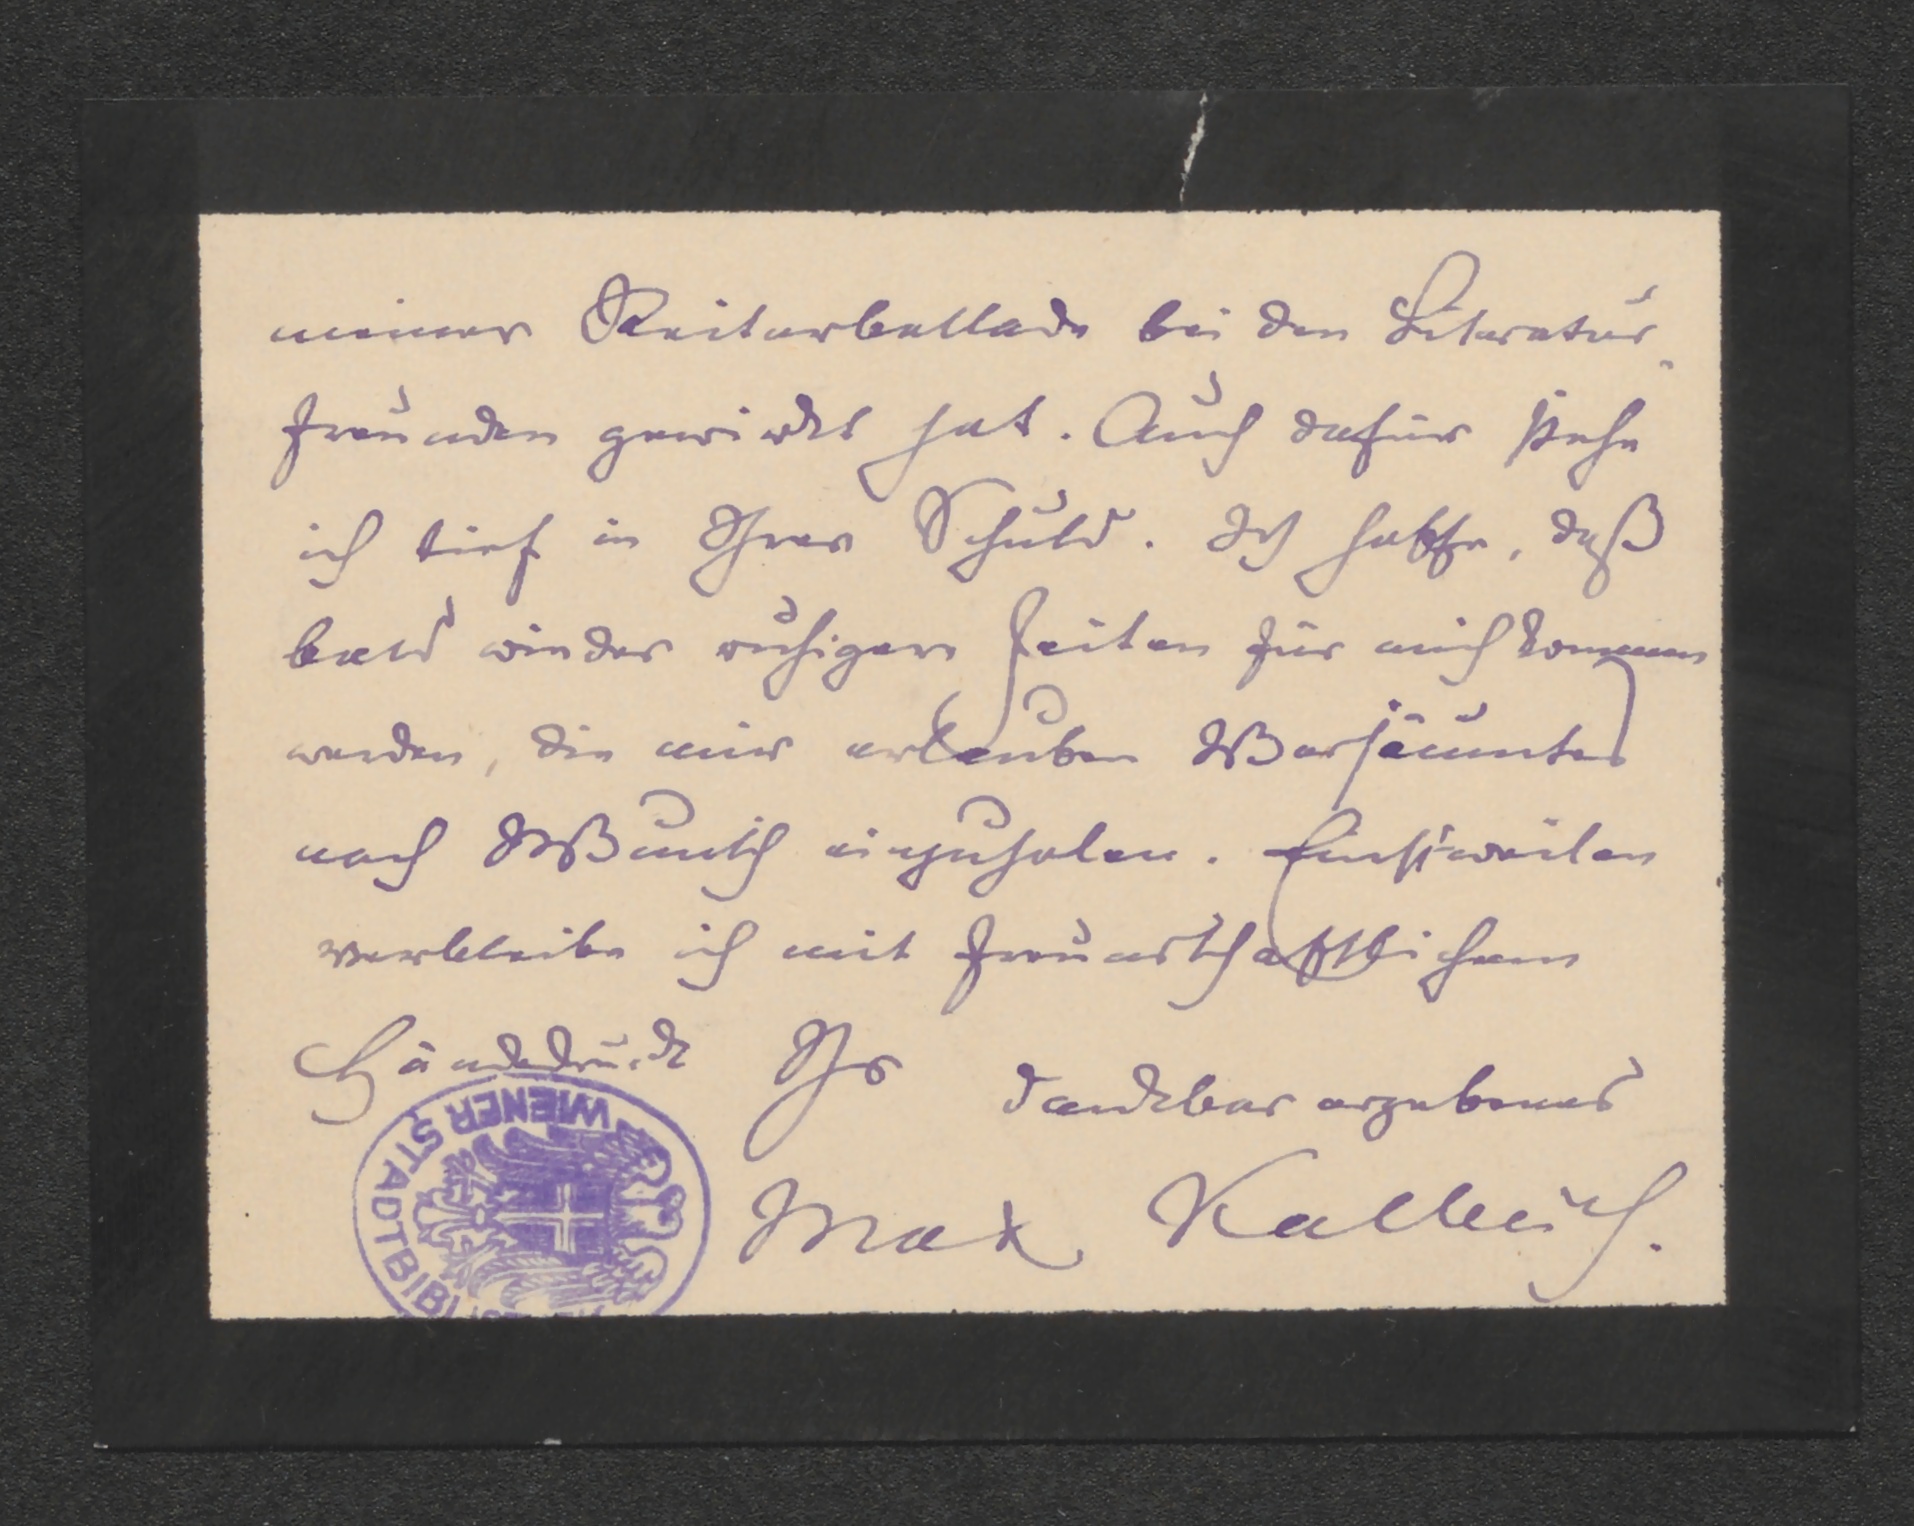 meiner Reiterballade bei den Literatur-
freunden gewirkt hat. Auch dafür stehe
ich tief in Ihrer Schuld. Ich hoffe, daß
bald wieder ruhigere Zeiten für mich kommen
werden, die mir erlauben Versäumtes
nach Wunsch einzuholen. Einstweilen
verbleibe ich mit freundschaftlichem
Händedruck Ihr dankbar ergebener
Max Kalbeck.
WIENER STADTBIBL